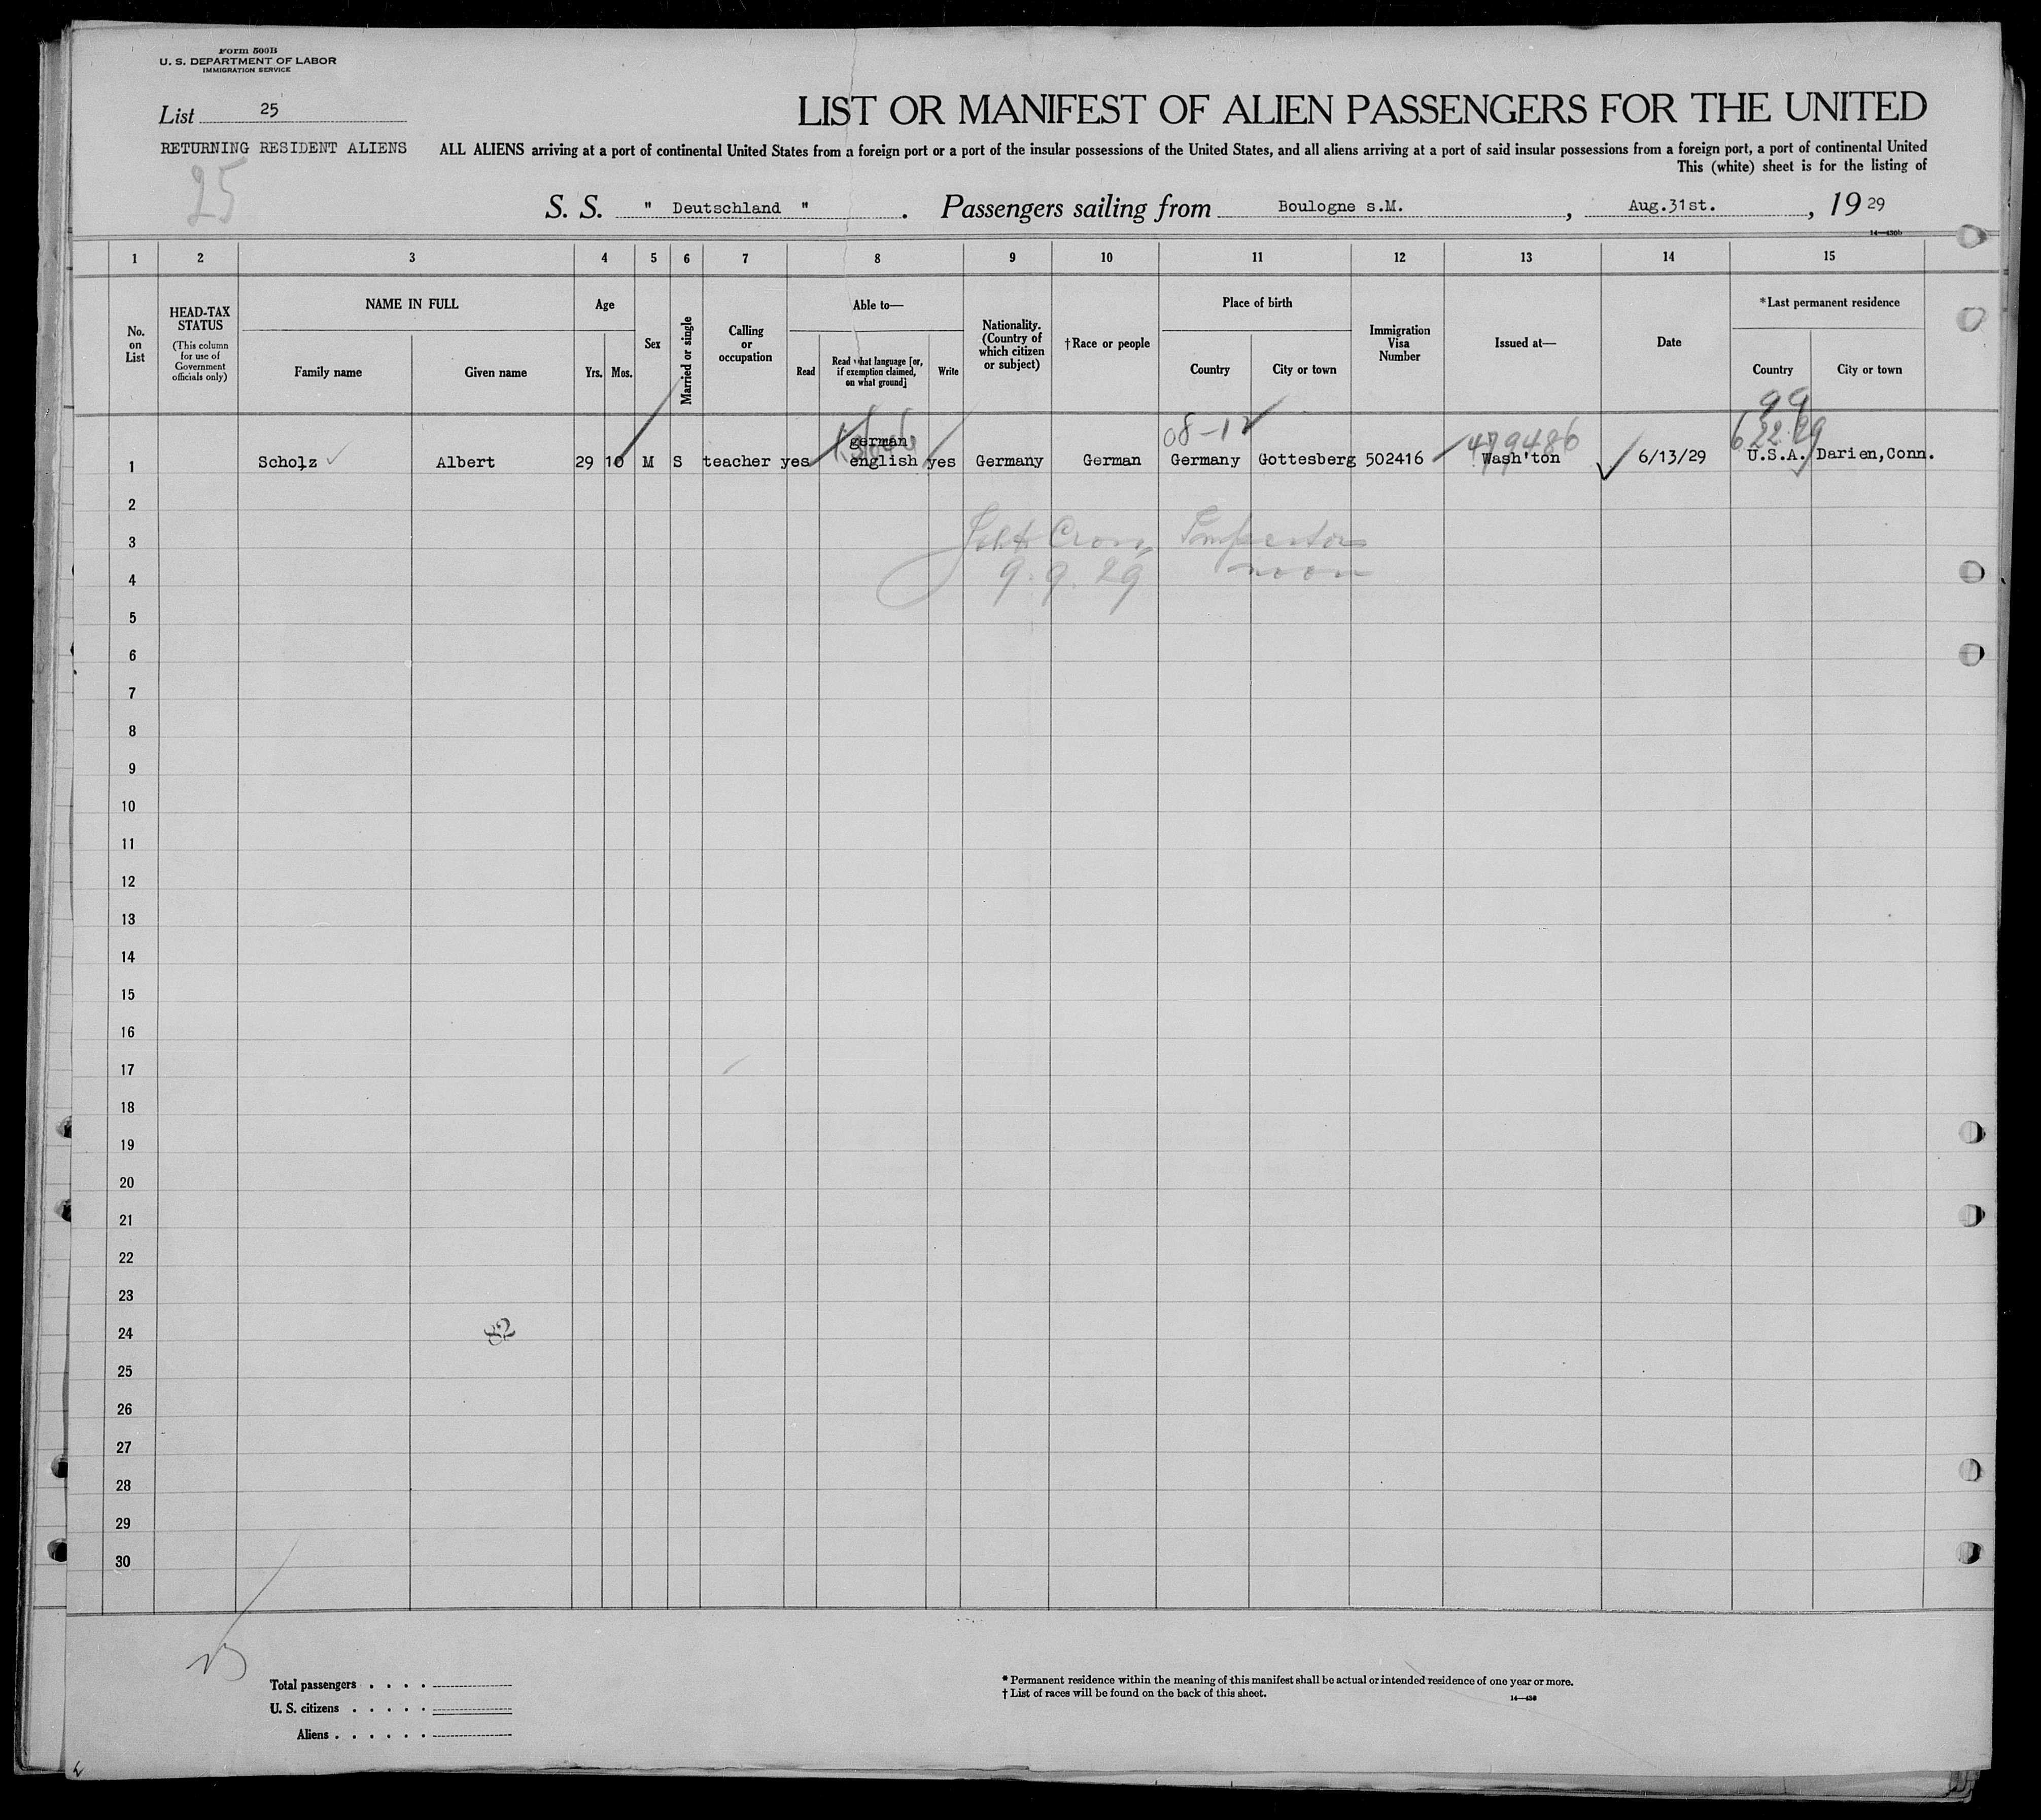 Form 500B
U. S. DEPARTMENT OF LABOR
IMMIGRATION SERVICE
List 25
LIST OR MANIFEST OF ALIEN PASSENGERS FOR THE UNITED
RETURNING RESIDENT ALIENS
ALL ALIENS arriving at a port of continental United States from a foreign port or a port of the insular possessions of the United States, and all aliens arriving at a port of said insular possessions from a foreign port, a port of continental United
This (white) sheet is for the listing of
25
S. S. " Deutschland " . Passengers sailing from Boulogne s.M. , Aug.31st. , 19 29
1 2 3 4 5 6 7 8 9 10 11 12 13 14 15
No. on List
HEAD-TAX STATUS
(This column for use of Government officials only)
NAME IN FULL
Family name
Given name
Age
Yrs.
Mos.
Sex
Married or single
Calling or occupation
Able to—
Read
Read what language [or, if exemption claimed, on what ground]
Write
Nationality. (Country of which citizen or subject)
†Race or people
Place of birth
Country
City or town
Immigration Visa Number
Issued at—
Date
*Last permanent residence
Country
City or town
99
08-12
479486
6 22 29
german
1 Scholz Albert 29 10 M S teacher yes english yes Germany German Germany Gottesberg 502416 Wash'ton 6/13/29 U.S.A. Darien,Conn.
2
3
9.9.29 noon
4
5
6
7
8
9
10
11
12
13
14
15
16
17
18
19
20
21
22
23
24
82
25
26
27
28
29
30
Total passengers . . . .
U. S. citizens . . . . .
Aliens . . . . . .
* Permanent residence within the meaning of this manifest shall be actual or intended residence of one year or more.
† List of races will be found on the back of this sheet.